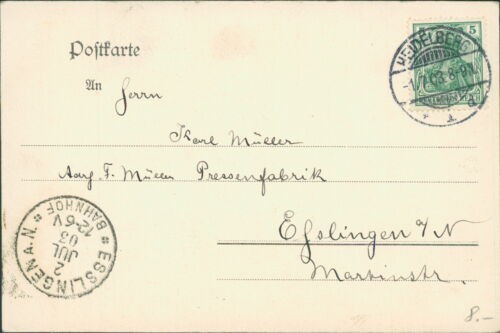 Postkarte
5
HEIDELBERG
-1.7.03.8-9N.
An
Herrn
Karl Müller
Adrf. F. Müller Pressenfabrik
Esslingen a/N
Martinstr.
ESSLINGEN A.N.
BAHNHOF
12-6V
03
JUL
2
8.-